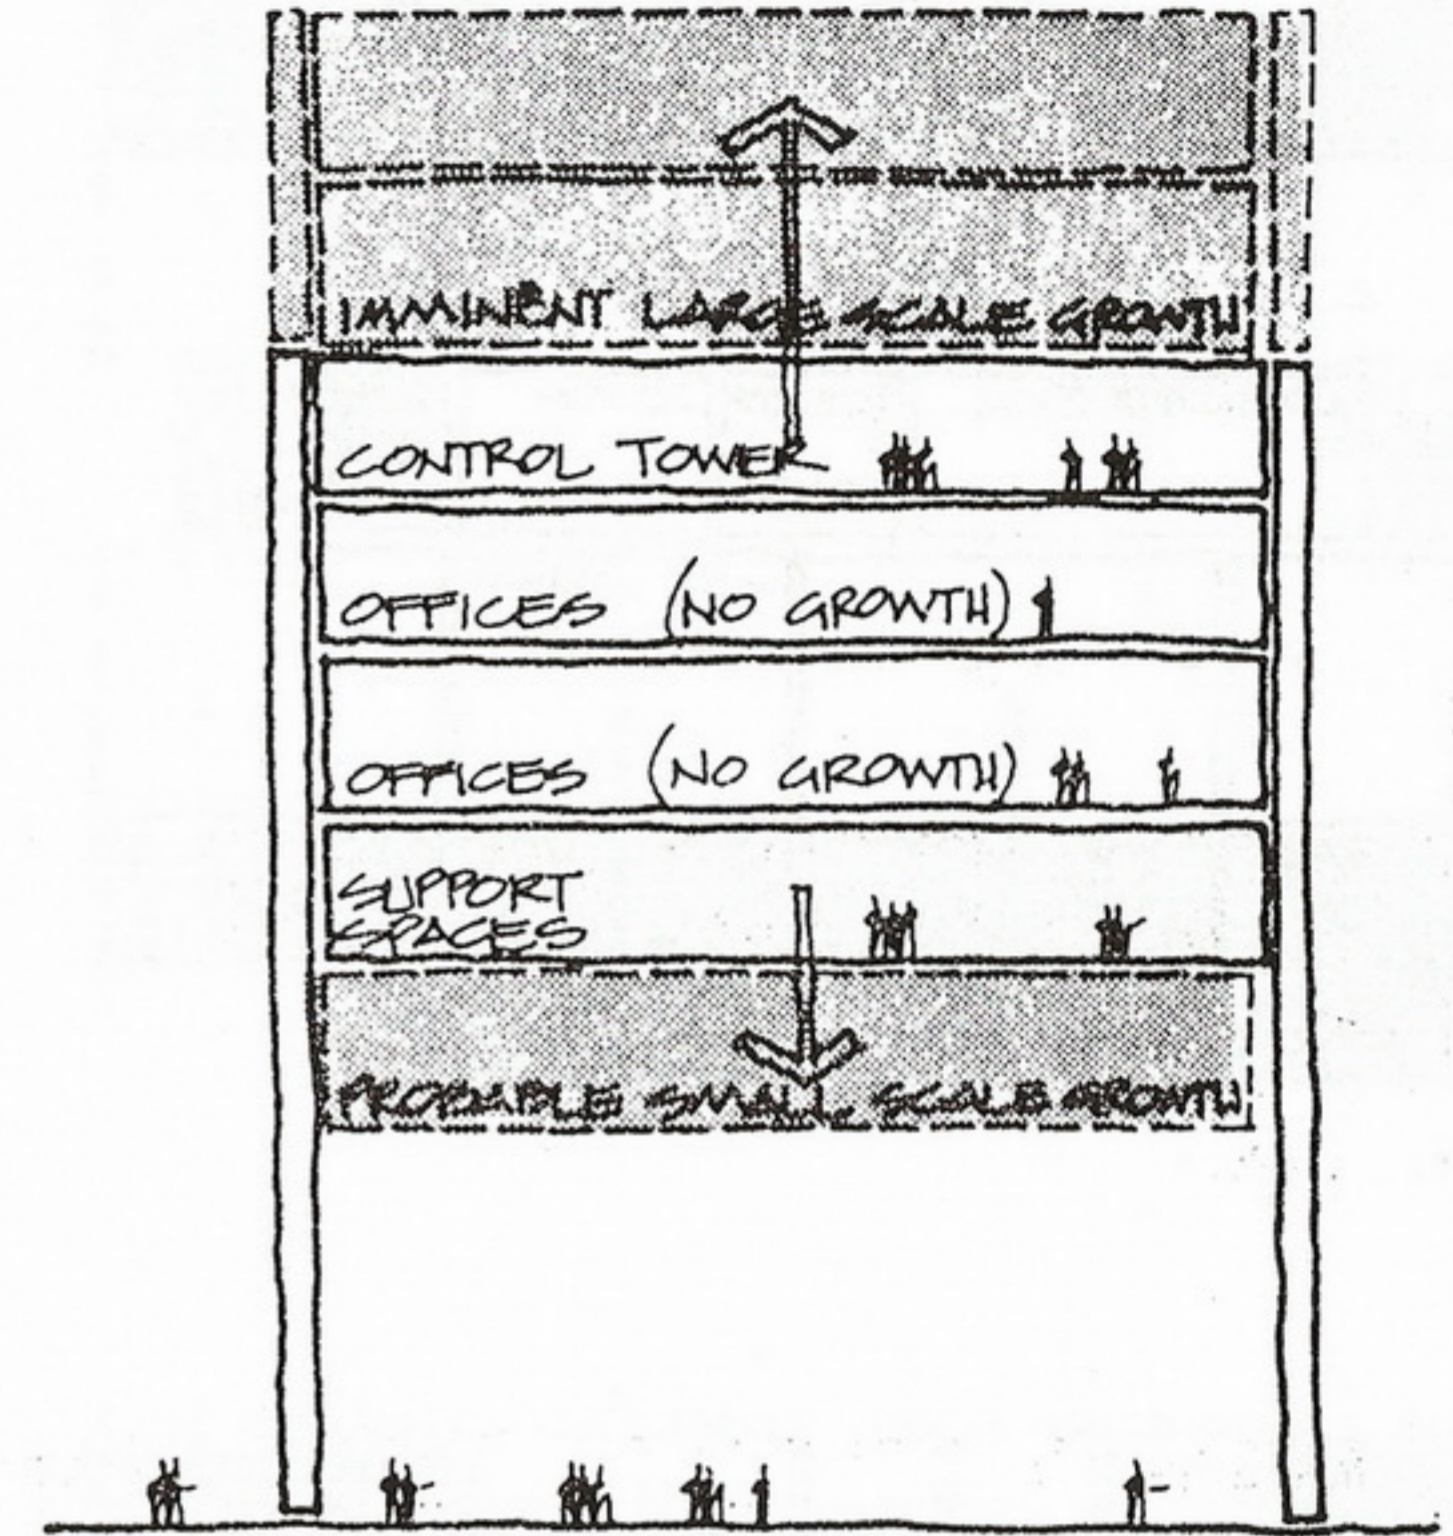 IMMINENT LARGE SCALE GROWTH
CONTROL TOWER
OFFICES (NO GROWTH)
OFFICES (NO GROWTH)
SUPPORT
SPACES
PROBABLE SMALL SCALE GROWTH